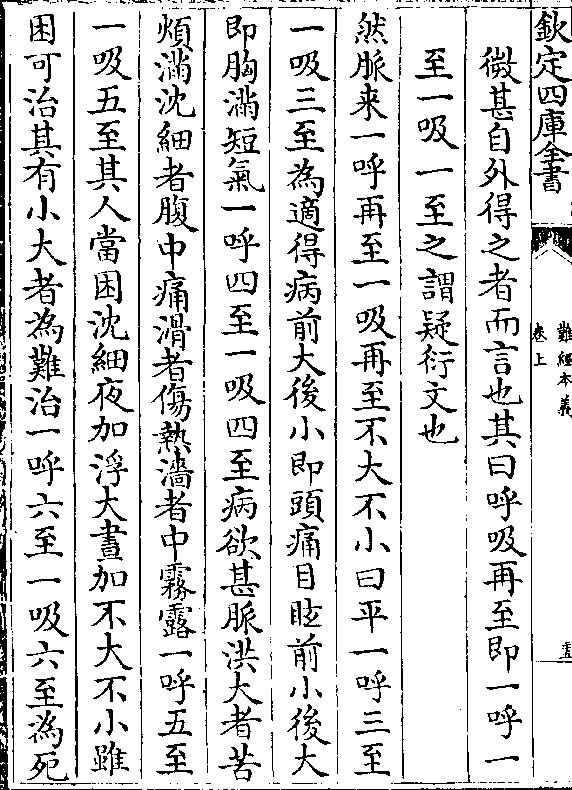 欽定四庫全書
難經本義
卷上
微甚自外得之者而言也其曰呼吸再至即一呼一
至一吸一至之謂疑衍文也
然脈来一呼再至一吸再至不大不小曰平一呼三至
一吸三至為適得病前大後小即頭痛目眩前小後大
即胸滿短氣一呼四至一吸四至病欲甚脈洪大者苦
煩滿沈細者腹中痛滑者傷熱濇者中霧露一呼五至
一吸五至其人當困沈細夜加浮大晝加不大不小雖
困可治其有小大者為難治一呼六至一吸六至為死